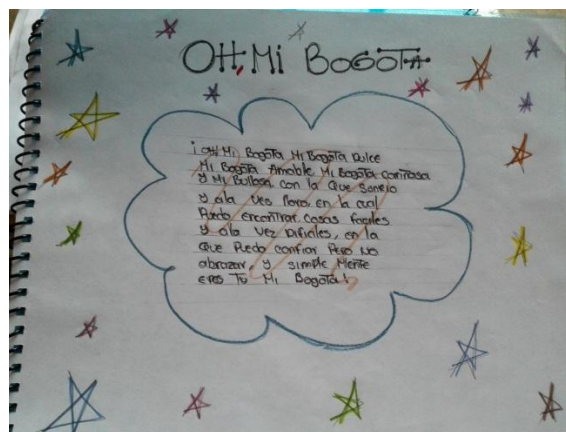 OH, Mi BOGOTA
¡OH! Mi Bogota Mi Bogota Dulce
Mi Bogota Amable Mi Bogota cariñosa
y Mi Bullosa con la Que sonrio
y ala ves lloro, en la cual
Puedo encontrar cosas faciles
y ala vez Dificiles, en la
Que Puedo confiar Pero No
abrazar, y simple Mente
eres Tu Mi Bogota!